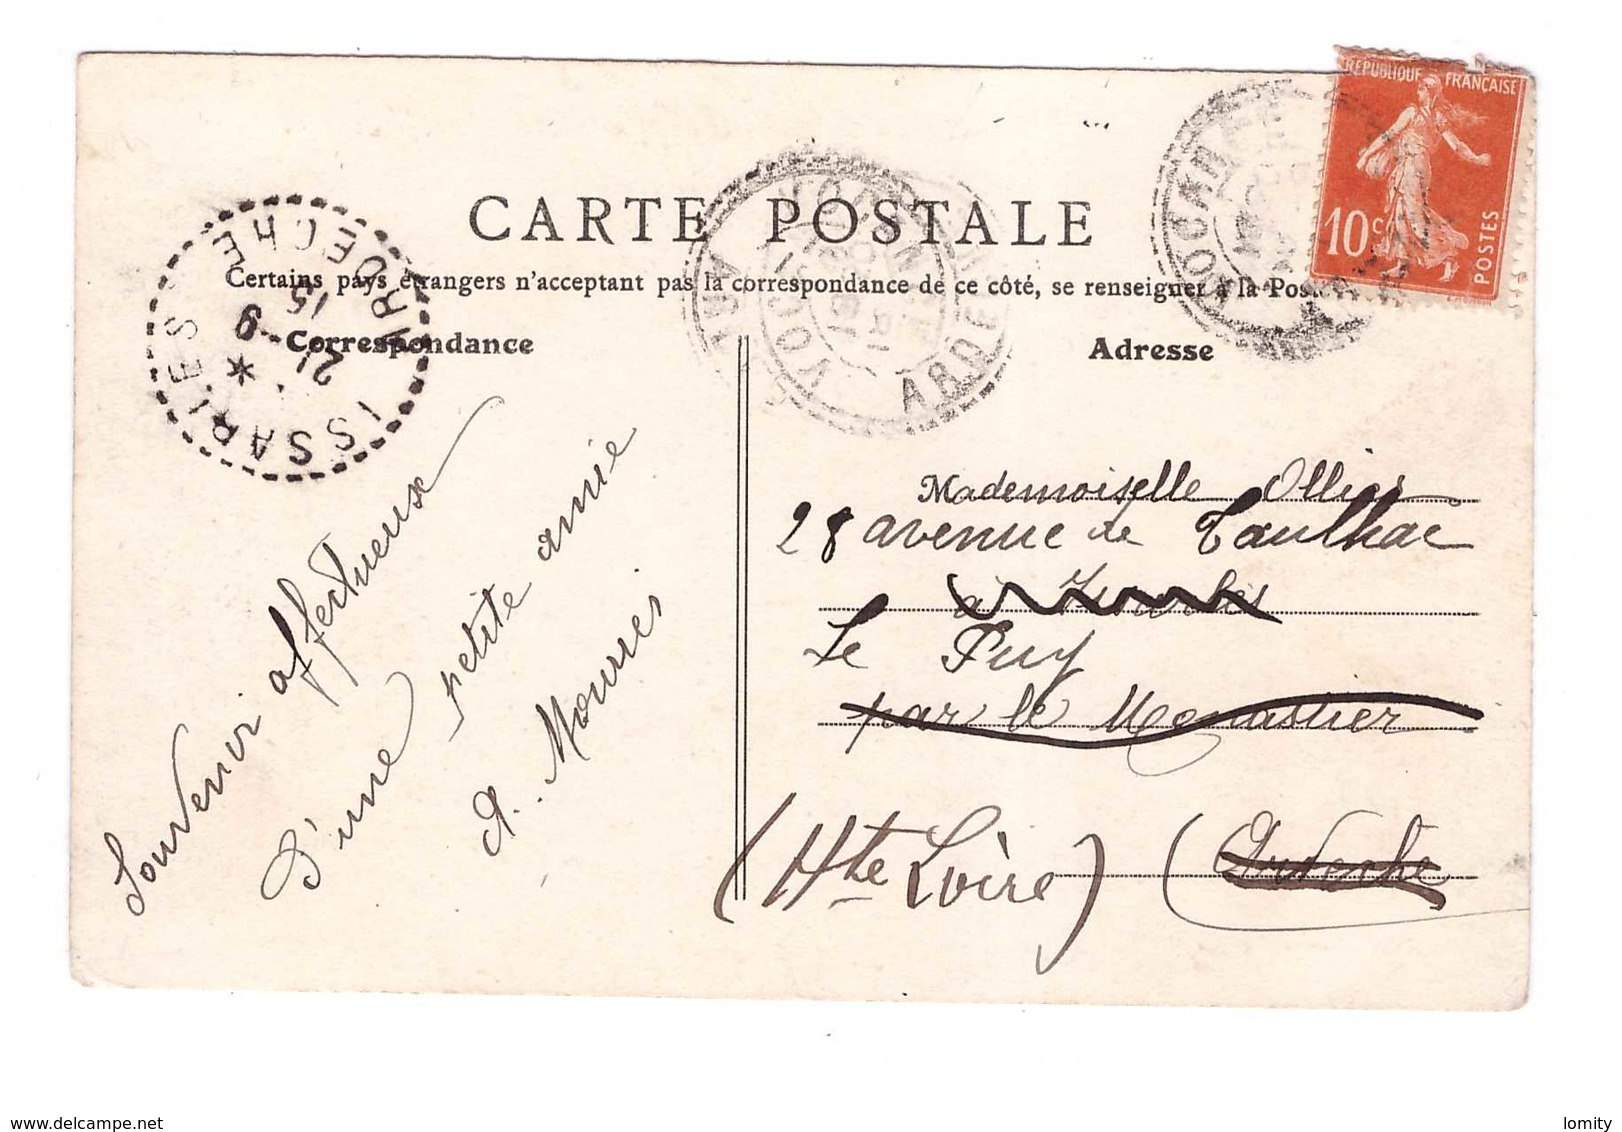 RÉPUBLIQUE FRANÇAISE
10 c
POSTES
CARTE POSTALE
Certains pays étrangers n'acceptant pas la correspondance de ce côté, se renseigner à la Poste
Correspondance
Adresse
ISSARLES
ARDECHE
21-9
15
ARDECHE
Souvenir affectueux
D'une petite amie
A. Mourier
Mademoiselle Ollier
28 avenue de Taulhac
à
Le Puy
par le Monastier
(Hte Loire) (Ardèche
delcampe.net
lomity